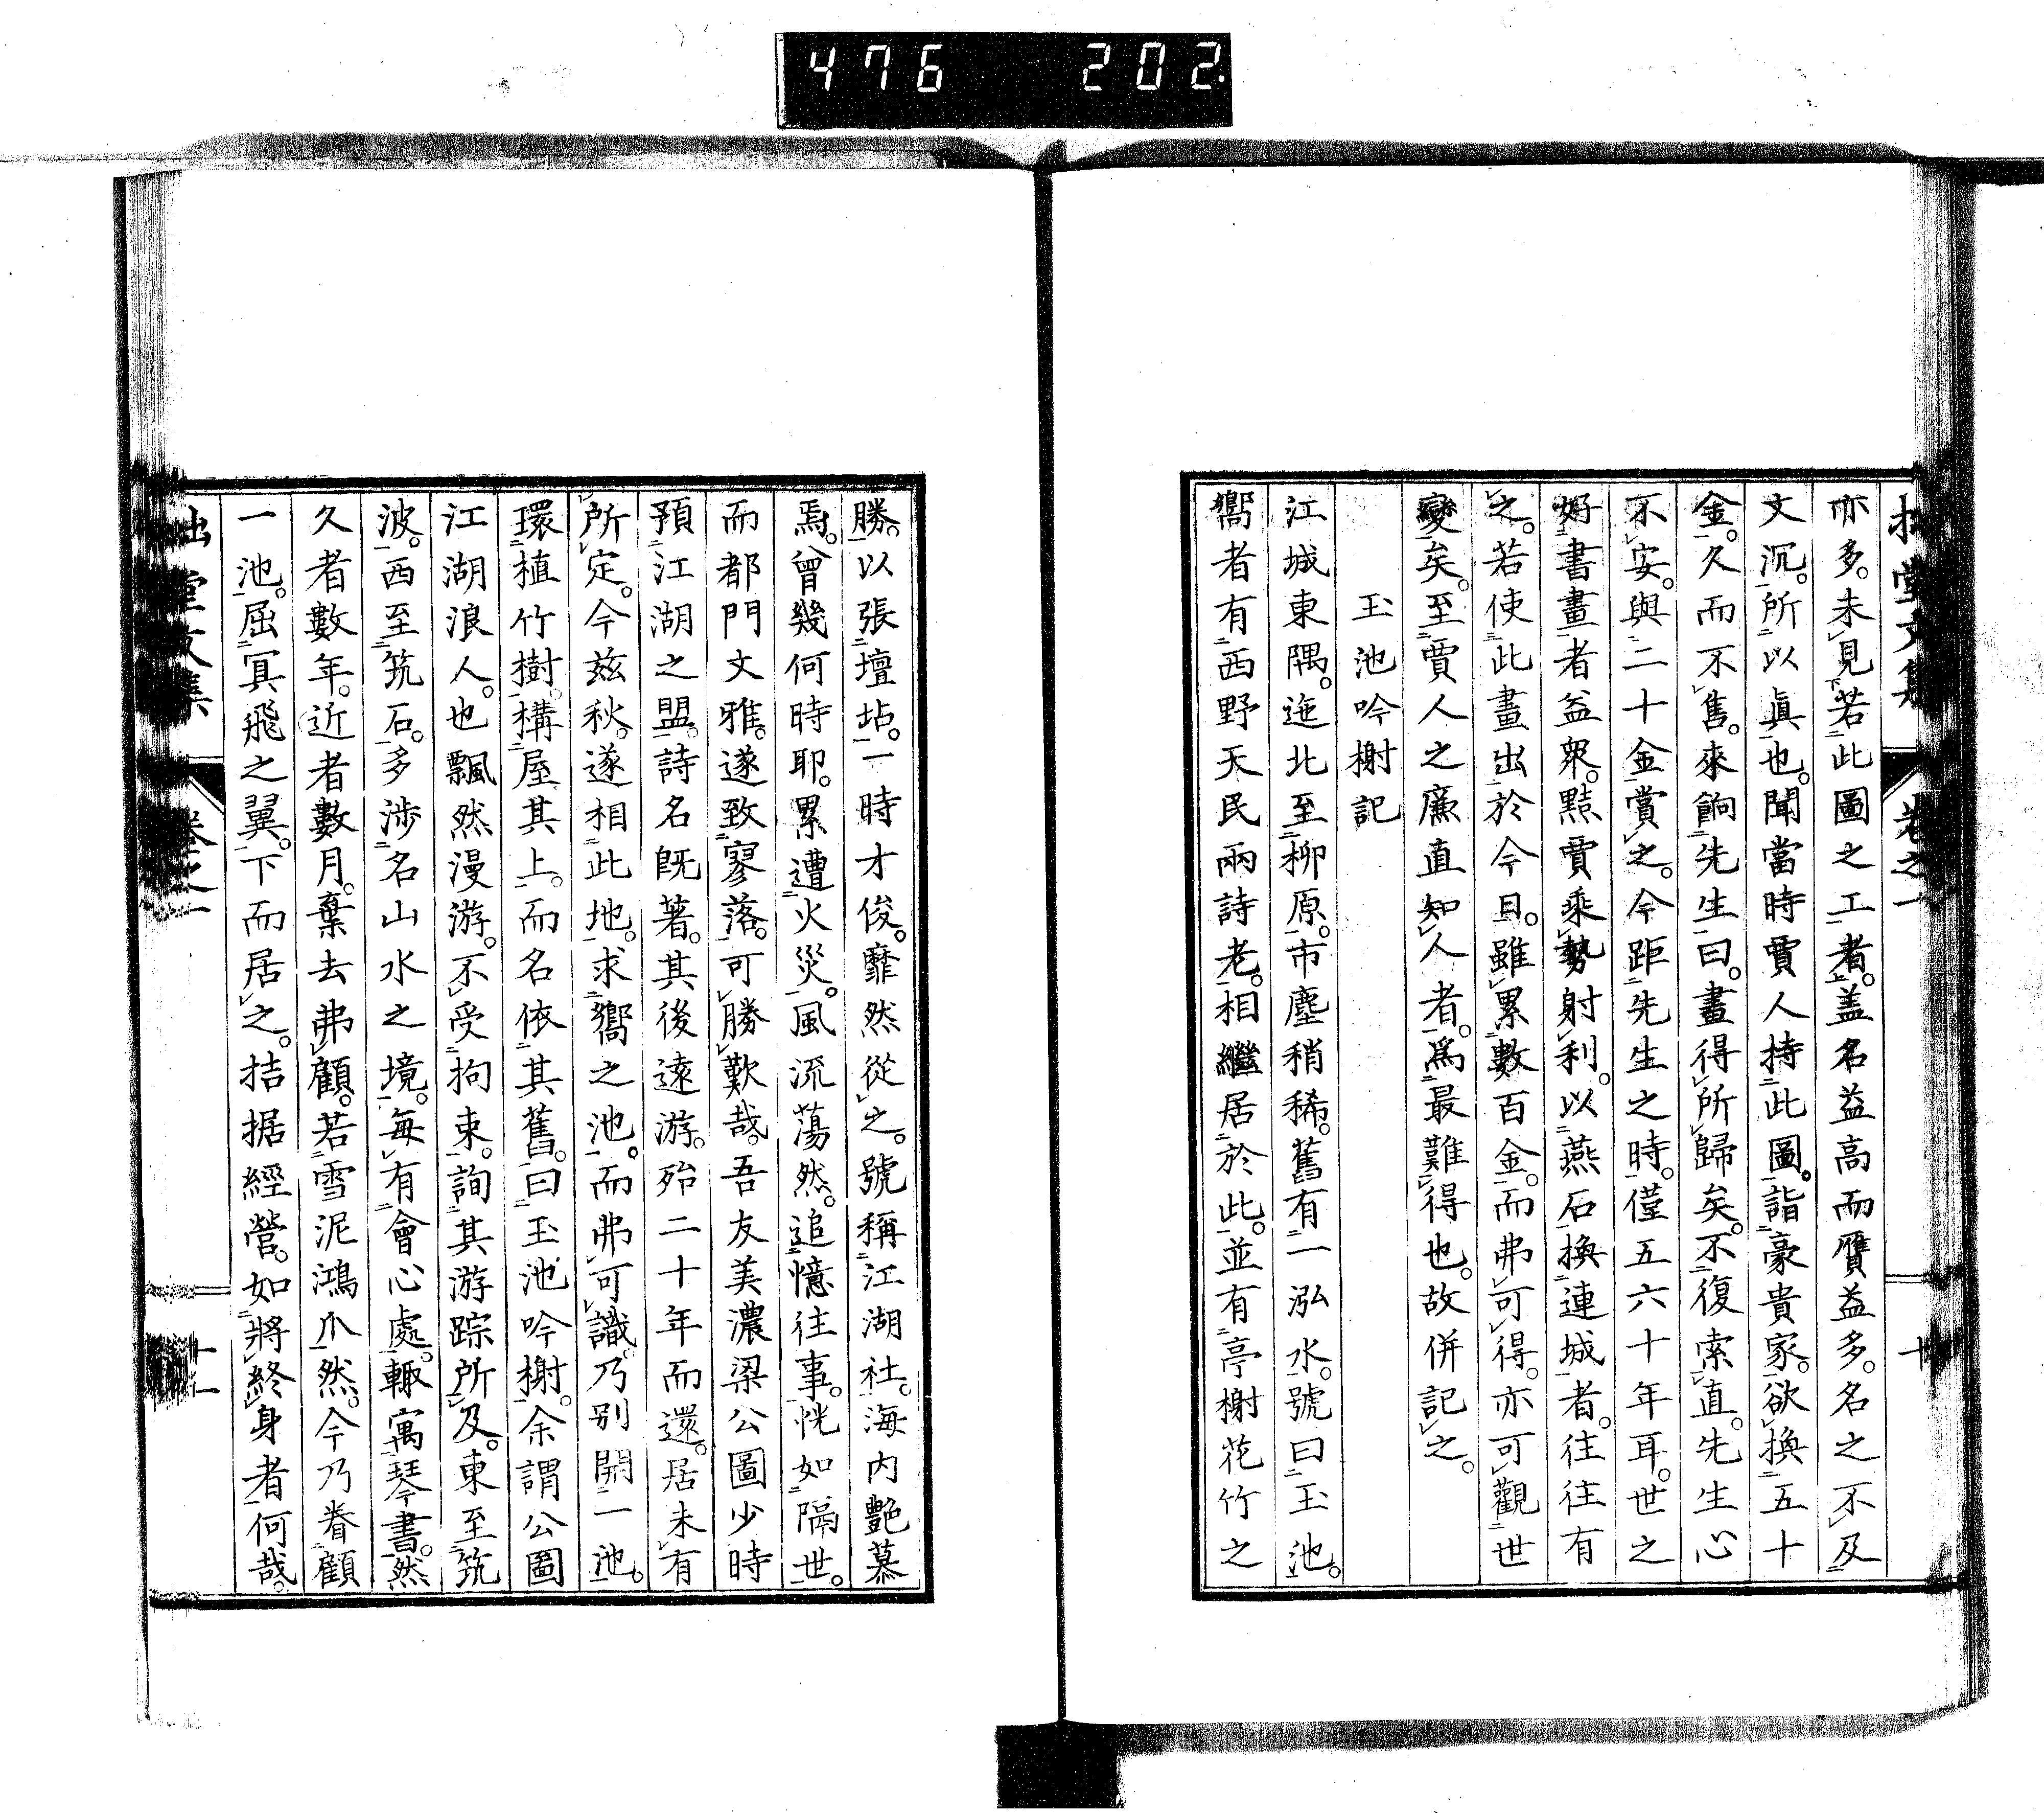 476 202.
拙堂文集 卷之一 十
亦多。未見若此圖之工者。盖名益高而贋益多。名之不及
文沉。所以眞也。聞當時賈人持此圖。詣豪貴家。欲換五十
金。久而不售。來餉先生曰。畫得所歸矣。不復索直。先生心
不安。與二十金賞之。今距先生之時。僅五六十年耳。世之
好書畫者益衆。黠賈乘勢射利。以燕石換連城者。往往有
之。若使此畫出於今日。雖累數百金。而弗可得。亦可觀世
變矣。至賈人之廉直知人者。爲最難得也。故併記之。
玉池吟榭記
江城東隅。迤北至柳原。市塵稍稀。舊有一泓水。號曰玉池。
嚮者有西野天民兩詩老。相繼居於此。並有亭榭花竹之
勝。以張壇坫。一時才俊。靡然從之。號稱江湖社。海内艷慕
焉。曾幾何時耶。累遭火災。風流蕩然。追憶往事。恍如隔世。
而都門文雅。遂致寥落。可勝歎哉。吾友美濃梁公圖少時
預江湖之盟。詩名既著。其後遠游。殆二十年而還。居未有
所定。今茲秋。遂相此地。求嚮之池。而弗可識。乃别開一池。
環植竹樹。構屋其上。而名依其舊。曰玉池吟榭。余謂公圖
江湖浪人。也飄然漫游。不受拘束。詢其游踪所及。東至筑
波。西至筑石。多渉名山水之境。每有會心處。輙寓琴書。然
久者數年。近者數月。棄去弗顧。若雪泥鴻爪然。今乃眷顧
一池。屈冥飛之翼。下而居之。拮据經營。如將終身者。何哉。
拙堂文集 卷之一 十一